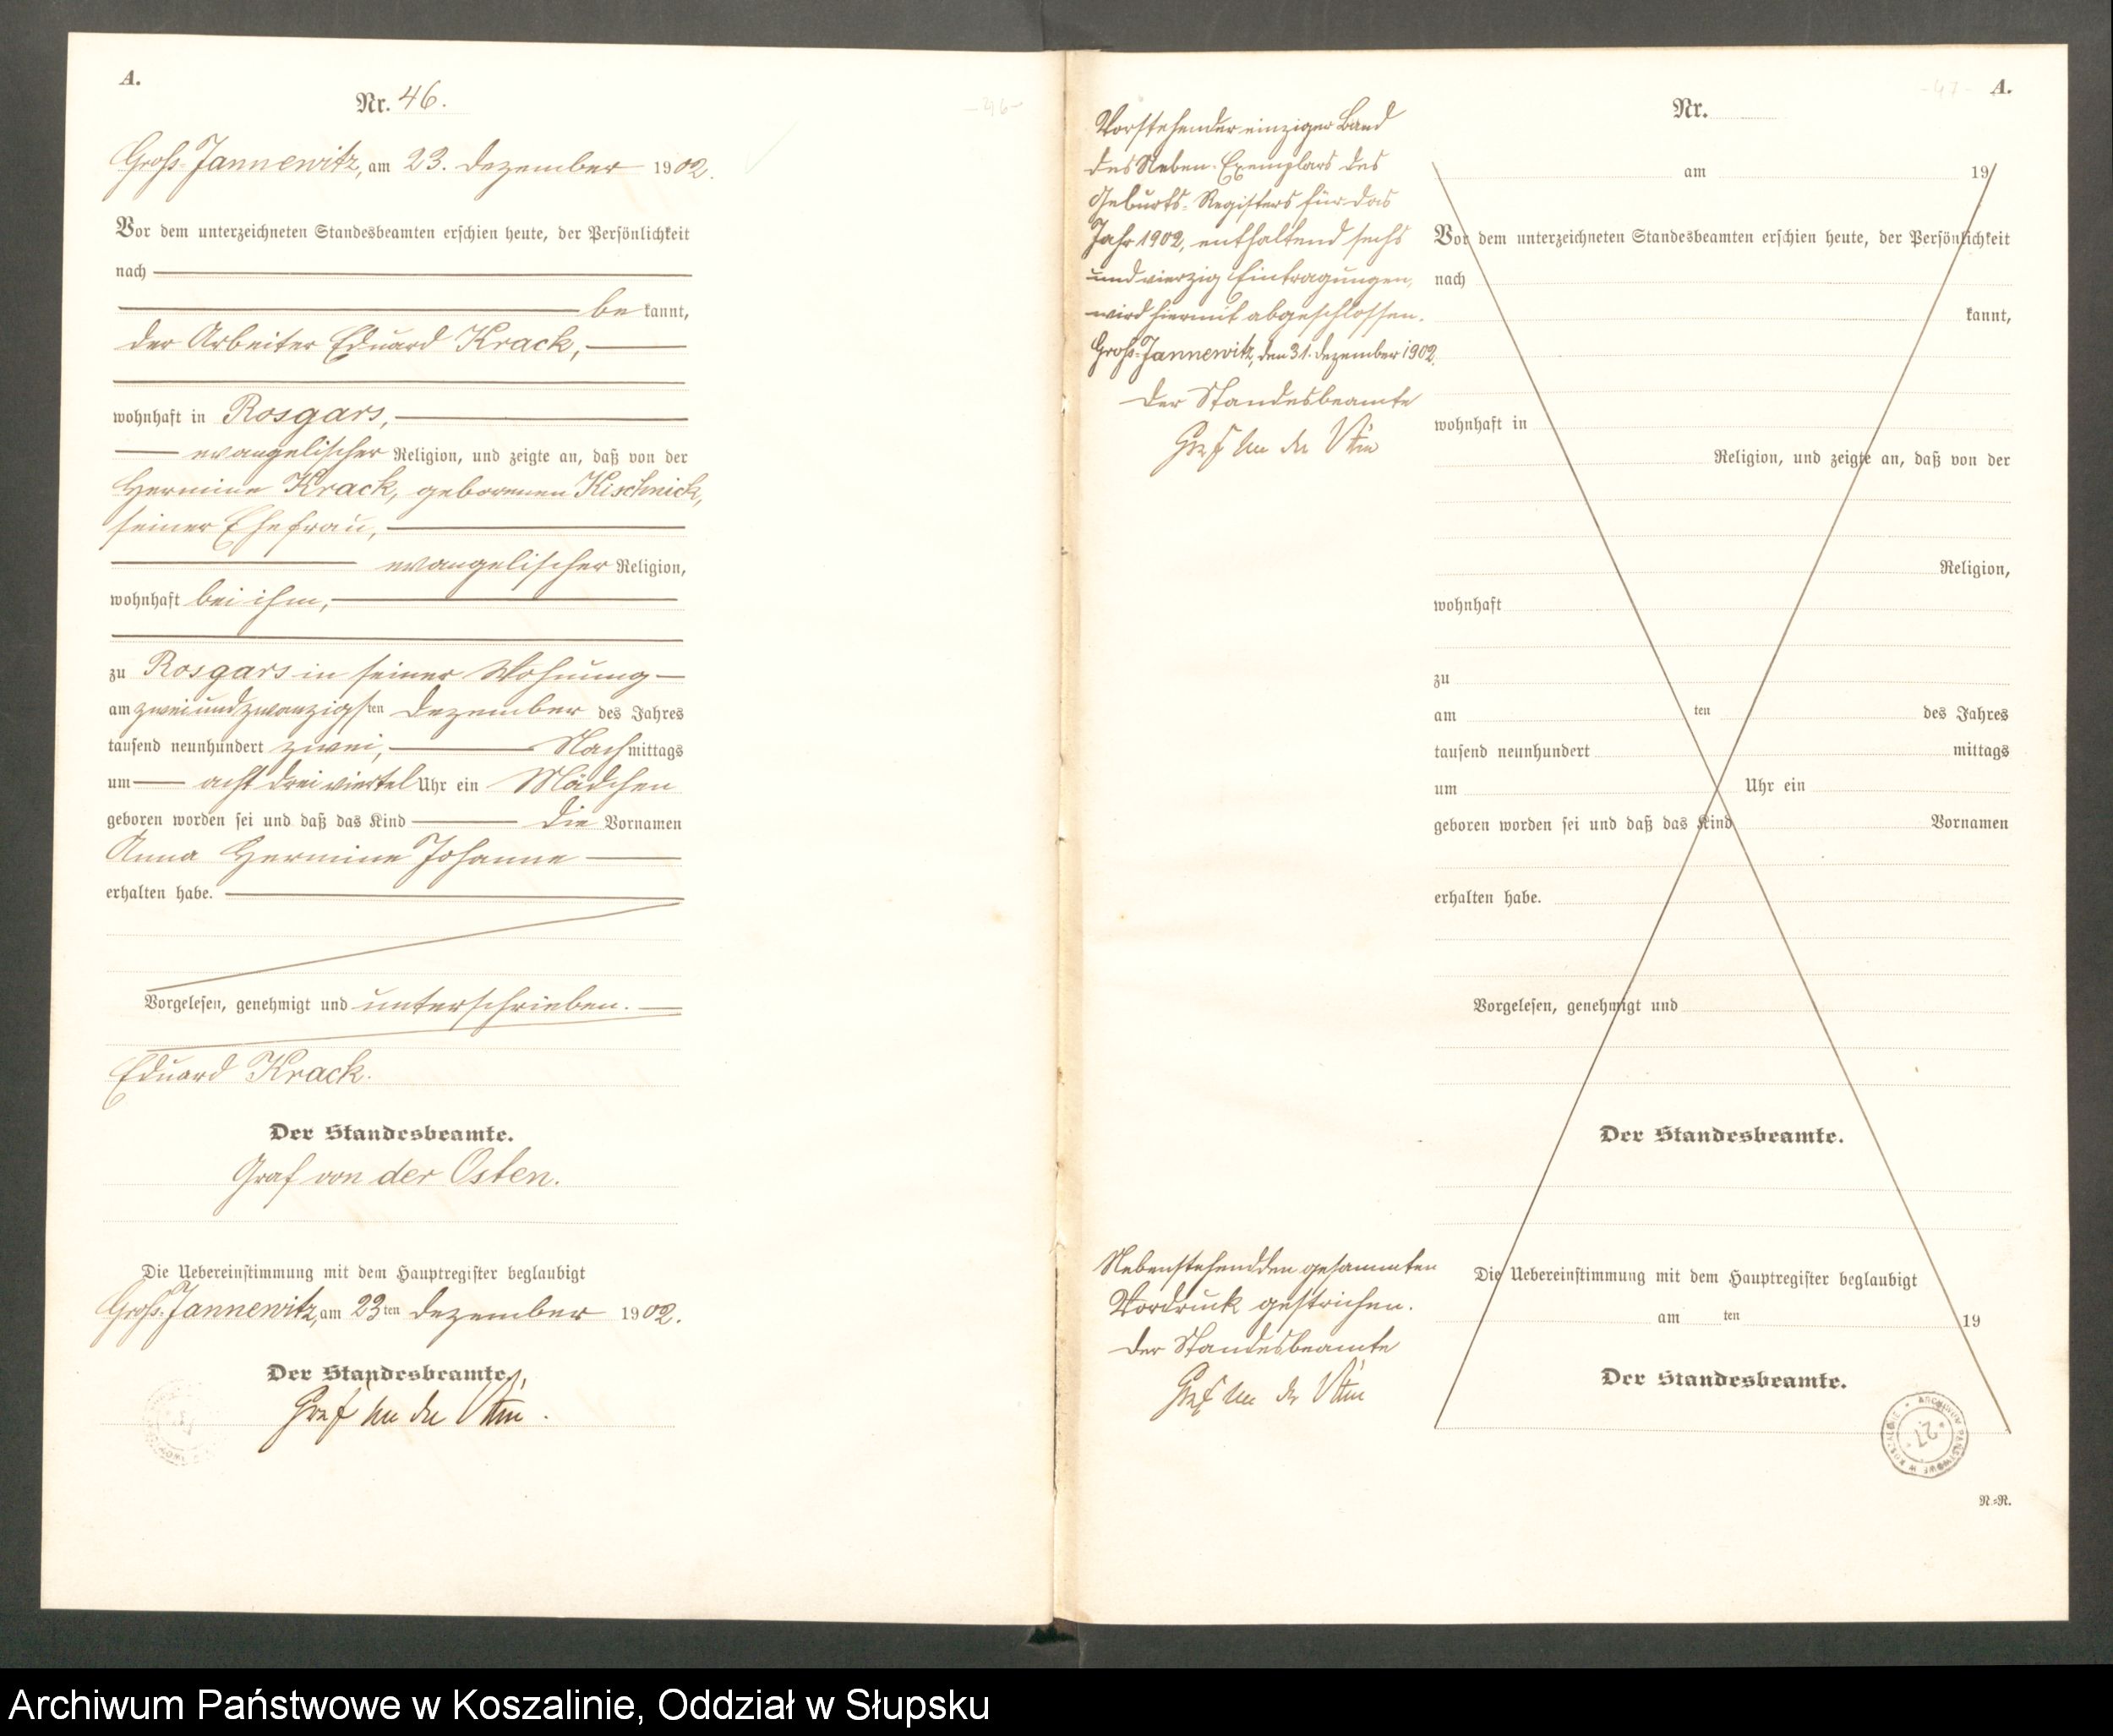 A.
Nr. 46.
Groß-Jannewitz, am 23. Dezember 1902.
Vor dem unterzeichneten Standesbeamten erschien heute, der Persönlichkeit
nach
be kannt,
der Arbeiter Eduard Krack,
wohnhaft in Rosgars,
evangelischer Religion, und zeigte an, daß von der
Hermine Krack, geborenen Kischnick,
seiner Ehefrau,
evangelischer Religion,
wohnhaft bei ihm,
zu Rosgars in seiner Wohnung
am zweiundzwanzigsten Dezember des Jahres
tausend neunhundert zwei, Nachmittags
um acht dreiviertel Uhr ein Mädchen
geboren worden sei und daß das Kind die Vornamen
Anna Hermine Johanne
erhalten habe.
Vorgelesen, genehmigt und unterschrieben.
Eduard Krack.
Der Standesbeamte.
Graf von der Osten.
Die Uebereinstimmung mit dem Hauptregister beglaubigt
Groß-Jannewitz, am 23ten Dezember 1902.
Der Standesbeamte.
Graf von der Osten.
Vorstehender einziger Band
des Neben-Exemplars des
Geburts-Registers für das
Jahr 1902, enthaltend sechs
und vierzig Eintragungen,
wird hiermit abgeschlossen.
Groß-Jannewitz, den 31. Dezember 1902.
Der Standesbeamte
Graf von der Osten
Nebenstehenden gesammten
Vordruck gestrichen.
Der Standesbeamte
Graf von der Osten
-47- A.
Nr.
am 19
Vor dem unterzeichneten Standesbeamten erschien heute, der Persönlichkeit
nach
kannt,
wohnhaft in
Religion, und zeigte an, daß von der
Religion,
wohnhaft
zu
am ten des Jahres
tausend neunhundert mittags
um Uhr ein
geboren worden sei und daß das Kind Vornamen
erhalten habe.
Vorgelesen, genehmigt und
Der Standesbeamte.
Die Uebereinstimmung mit dem Hauptregister beglaubigt
am ten 19
Der Standesbeamte.
ARCHIWUM PAŃSTWOWE W KOSZALINIE
27
N.=R.
Archiwum Państwowe w Koszalinie, Oddział w Słupsku